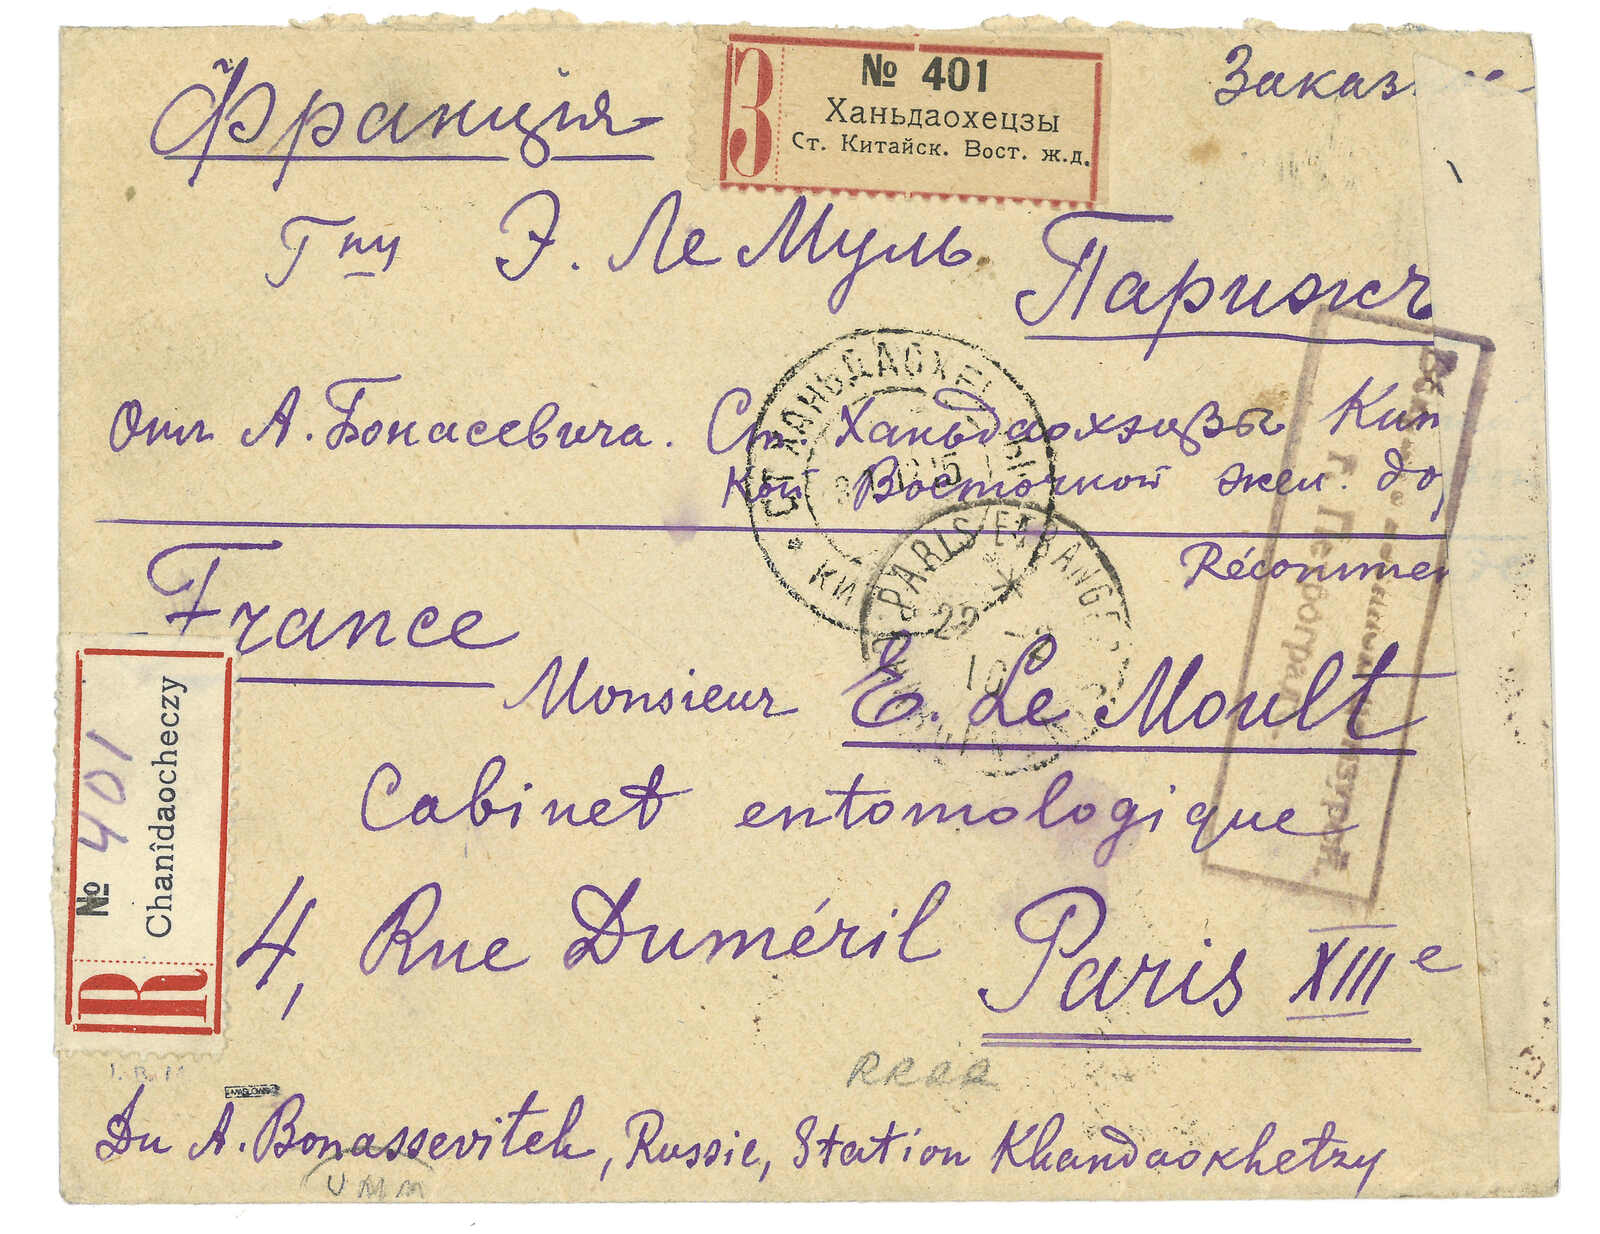 Франція
З
№ 401
Ханьдаохецзы
Ст. Китайск. Вост. ж.д.
Заказ
Гну Э. Ле Муль
Парижъ
Отъ А. Бонасевича. Ст. Ханьдаохэцзы Кит
кой Восточной жел. до
СТ ХАНЬДАОХЕ
КИ
PARIS ETRANGER
22
Г. Петрогра
Récommen
France
Monsieur E. Le Moult
Cabinet entomologique
4, Rue Duméril Paris XIIIe
R
№ 401
Chanîdaocheczy
RRRR
Du A. Bonassevitch, Russie, Station Khandaokhetzy